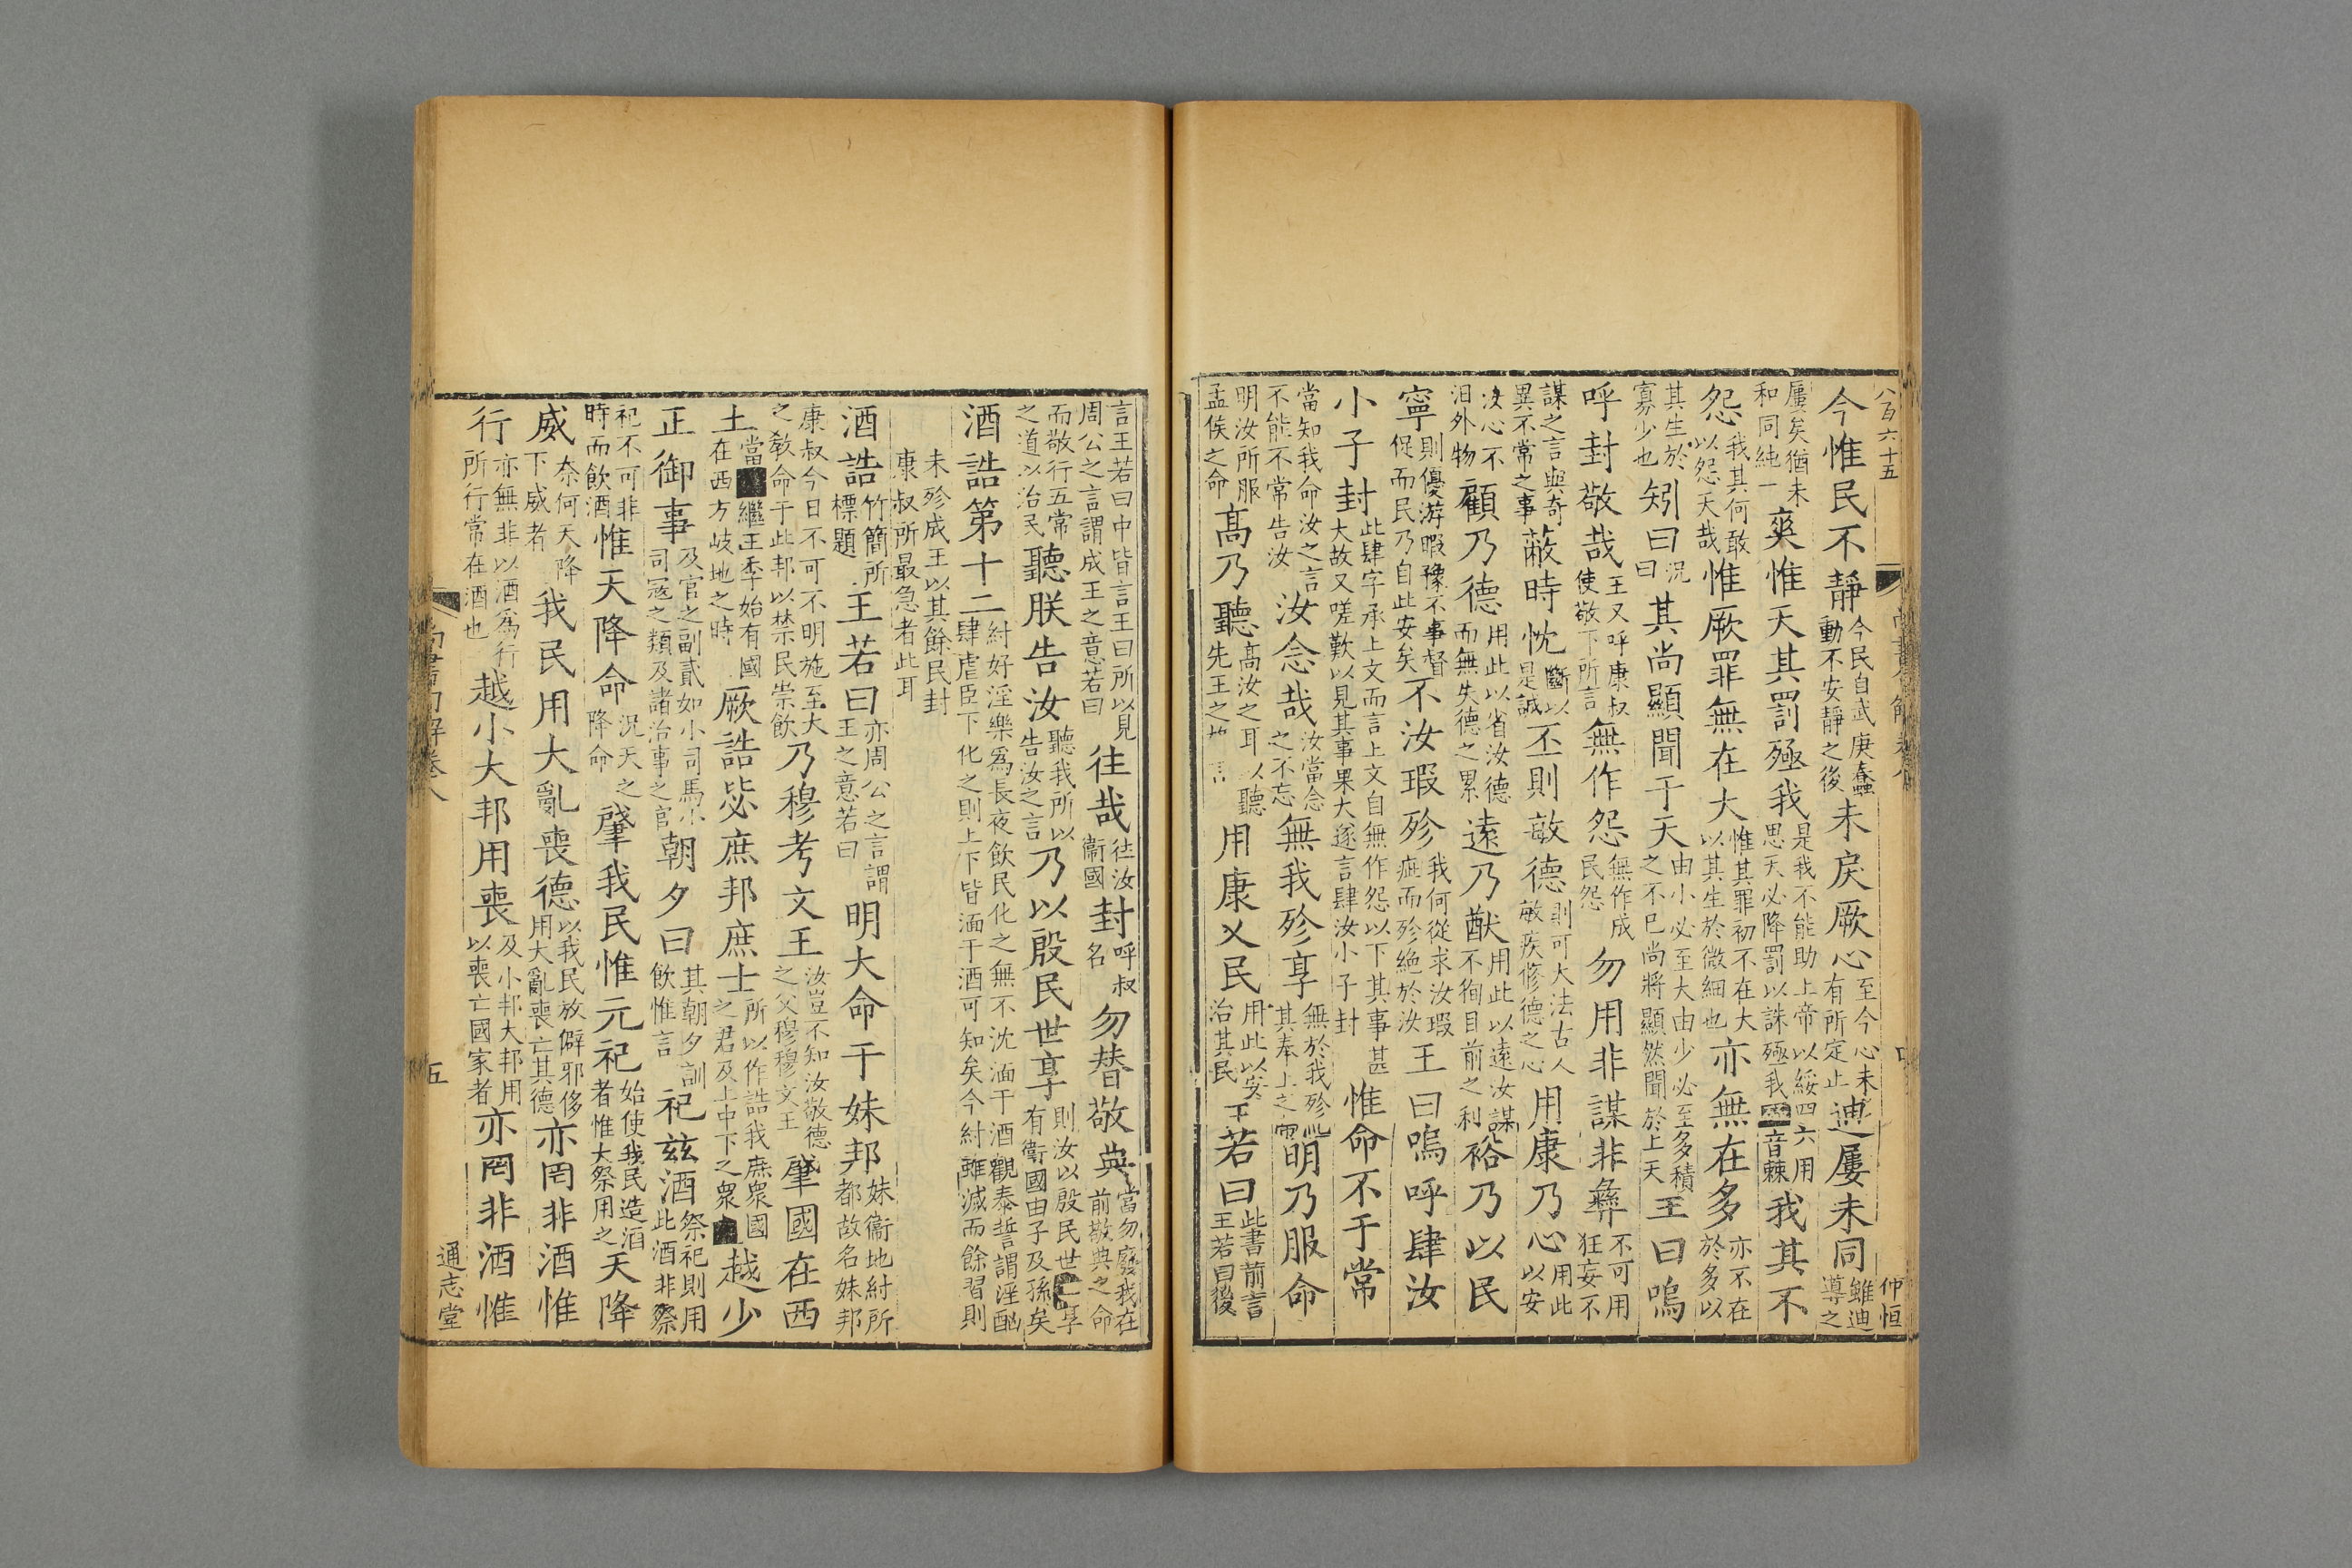 八百六十五
今惟民不靜今民自武庚蠢動不安靜之後未戾厥心至今心未有所定止迪屢未同雖迪導之
屢矣猶未和同純一爽惟天其罰殛我是我不能助上帝以綏四六用思天必降罰以誅殛我音棘我其不
怨我其何敢以怨天哉惟厥罪無在大惟其罪初不在大以其生於微細也亦無在多亦不在於多以
其生於寡少也矧曰況曰其尚顯聞于天由小必至大由少必至多積之不已尚將顯然聞於上天王曰嗚
呼封敬哉王又呼康叔使敬下所言無作怨無作成民怨勿用非謀非彝不可用狂妄不
謀之言與奇異不常之事蔽時忱斷以是誠丕則敏德則可大法古人敏疾修德之心用康乃心用此以安
汝心不汨外物顧乃德用此以省汝德而無失德之累遠乃猷用此以遠汝謀不徇目前之利裕乃以民
寧則優游暇豫不事督促而民乃自此安矣不汝瑕殄我何從求汝瑕疵而殄絕於汝王曰嗚呼肆汝
小子封此肆字承上文而言上文自無作怨以下其事甚大故又嗟歎以見其事果大遂言肆汝小子封惟命不于常
當知我命汝之言不能不常告汝汝念哉汝當念之不忘無我殄享無於我殄此其奉上之明乃服命
明汝所服孟侯之命高乃聽高汝之耳以聽先王之用康乂民用此以安治其民王若曰此書前言王若曰後
仲恒
言王若曰中皆言王曰所以見周公之言謂成王之意若曰往哉往汝衞國封呼叔名勿替敬典當勿廢我在前敬典之命
而敬行五常之道以治民聽朕告汝聽我所以告汝之言乃以殷民世享則汝以殷民世世享有衞國由子及孫矣
酒誥第十二紂好淫樂爲長夜飲民化之無不沈湎于酒觀泰誓謂淫酗肆虐臣下化之則上下皆湎于酒可知矣今紂雖滅而餘習則
未殄成王以其餘民封康叔所最急者此耳
酒誥竹簡所標題王若曰亦周公之言謂王之意若曰明大命于妹邦妹衞地紂所都故名妹邦
康叔今日不可不明施至大之敎命于此邦以禁民崇飲乃穆考文王汝豈不知汝敬德之父穆穆文王肇國在西
土當繼王季始有國在西方岐地之時厥誥毖庶邦庶士所以作誥我庶衆國之君及上中下之衆越少
正御事及官之副貳如小司馬小司寇之類及諸治事之官朝夕曰其朝夕訓飲惟言祀兹酒祭祀則用此酒非祭
祀不可非時而飲酒惟天降命況天之降命肇我民惟元祀始使我民造酒者惟大祭用之天降
威奈何天降下威者我民用大亂喪德以我民放僻邪侈用大亂喪亡其德亦罔非酒惟
行亦無非以酒爲行所行常在酒也越小大邦用喪及小邦大邦用以喪亡國家者亦罔非酒惟
尚書句解卷八
五
通志堂